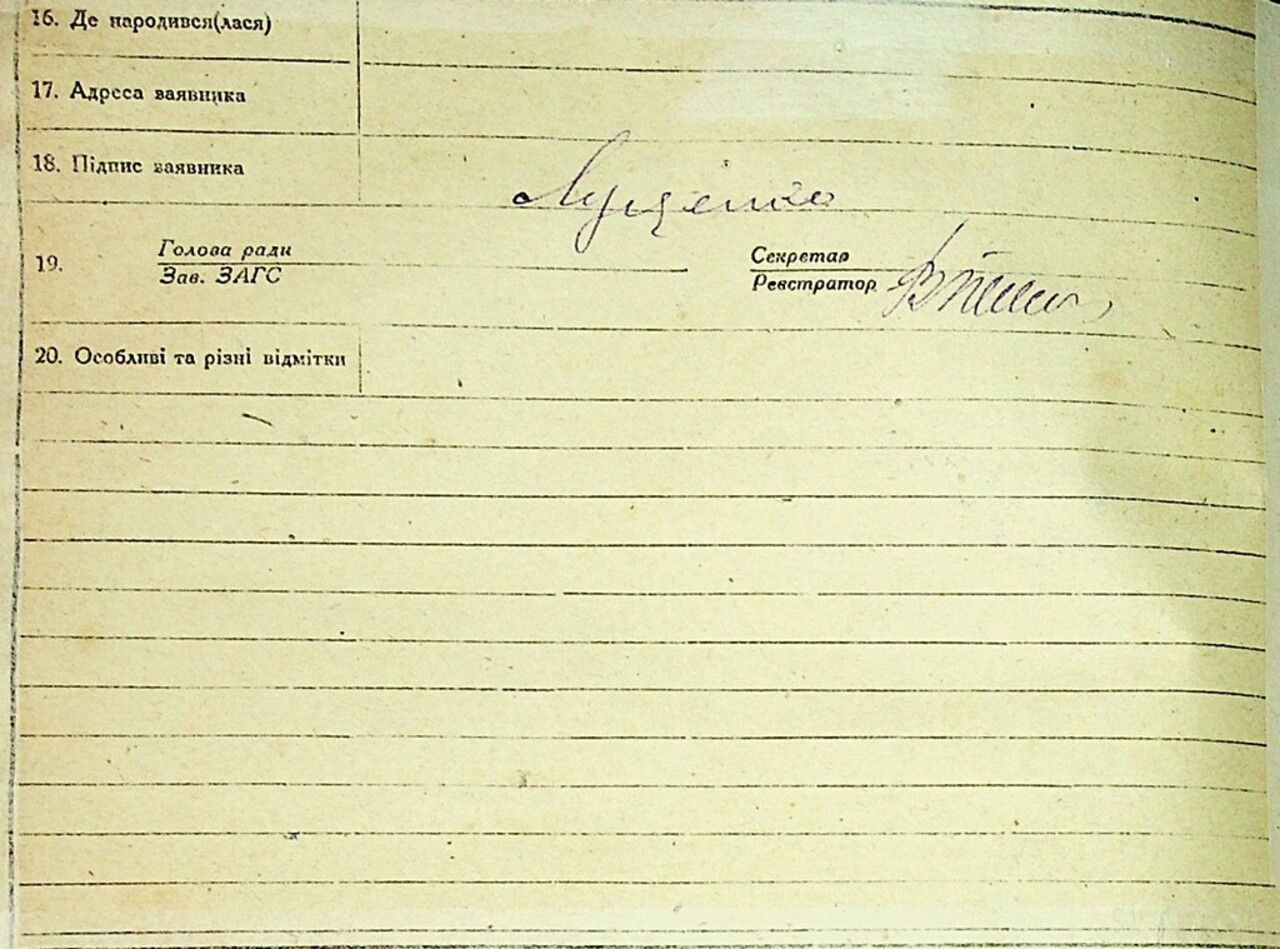 16. Де народився(лася)
17. Адреса заявника
18. Підпис заявника Лущенко
19. Голова ради Секретар
Зав. ЗАГС Реєстратор
20. Особливі та різні відмітки